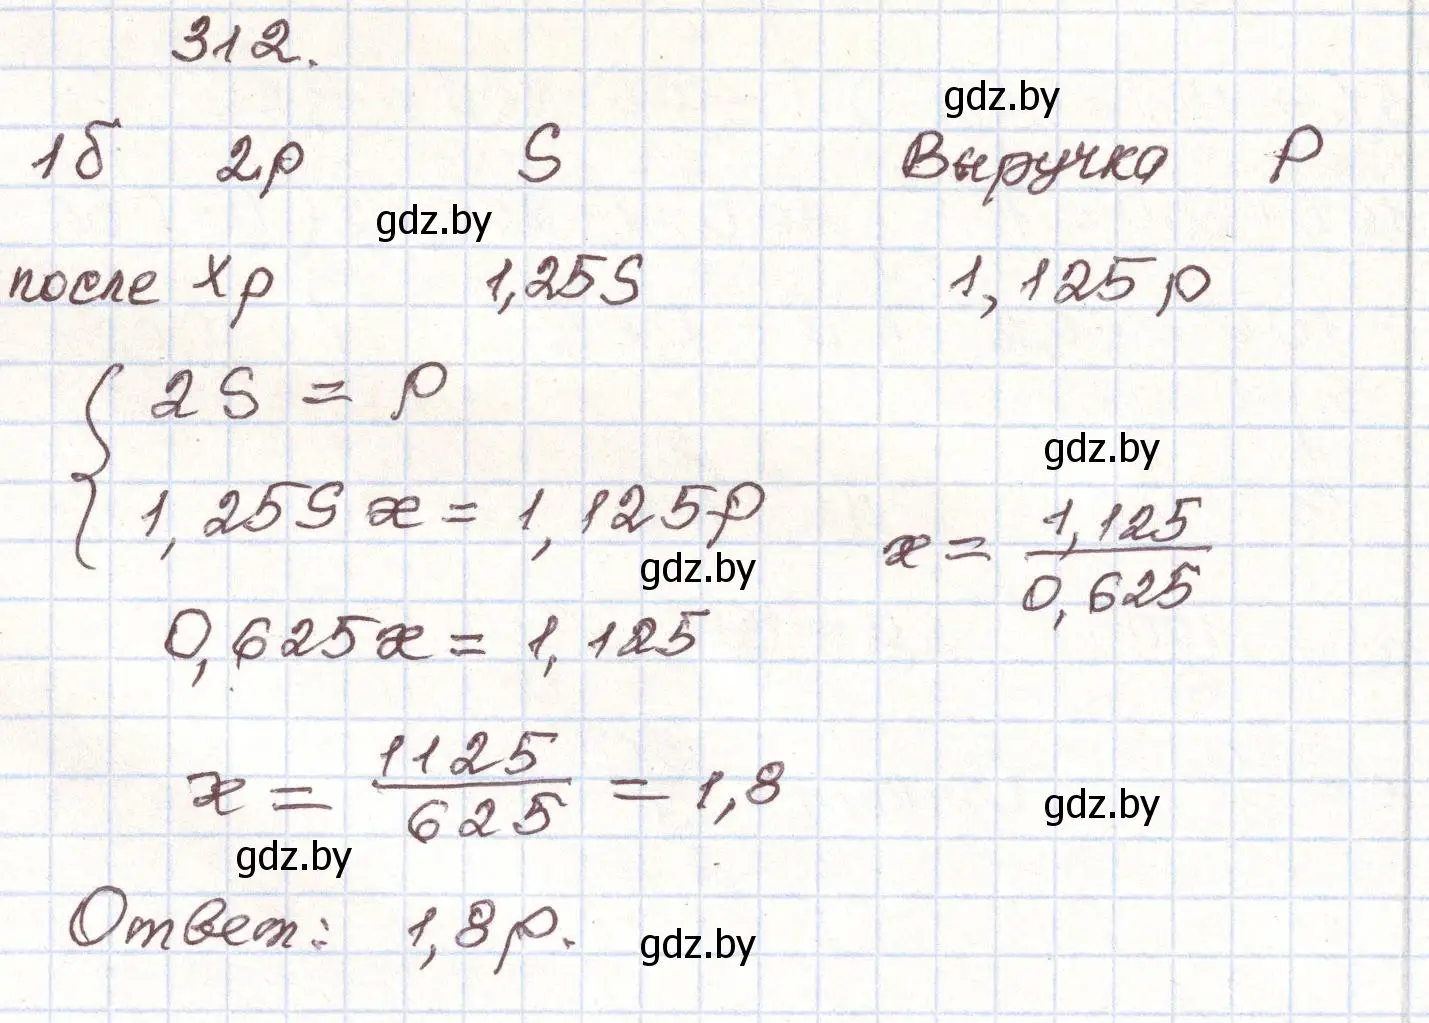 312.
gdz.by
1б 2р S Выручка P
gdz.by
после Xр 1,25S 1,125p
2S = P
gdz.by
1,25Sx = 1,125P x = 1,125/0,625
gdz.by
0,625x = 1,125
x = 1125/625 = 1,8
gdz.by
gdz.by
Ответ: 1,8р.
gdz.by